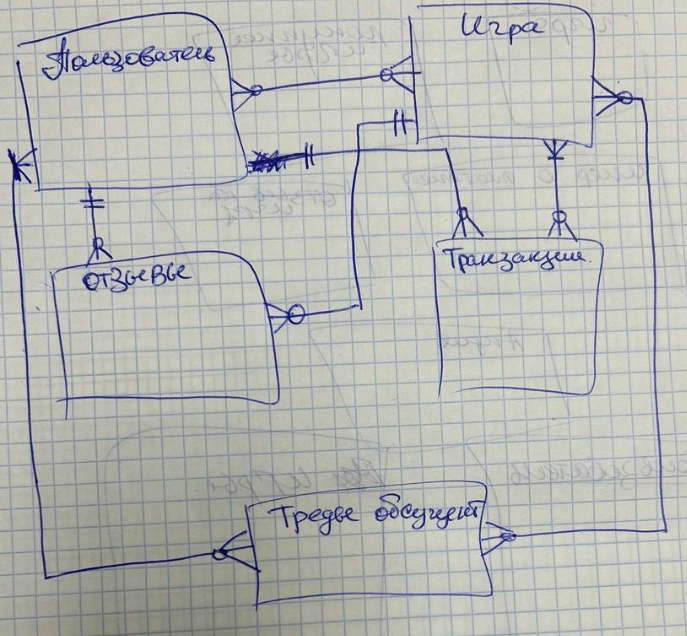 Пользователь
Игра
отзывы
Транзакции
Треды обсужден